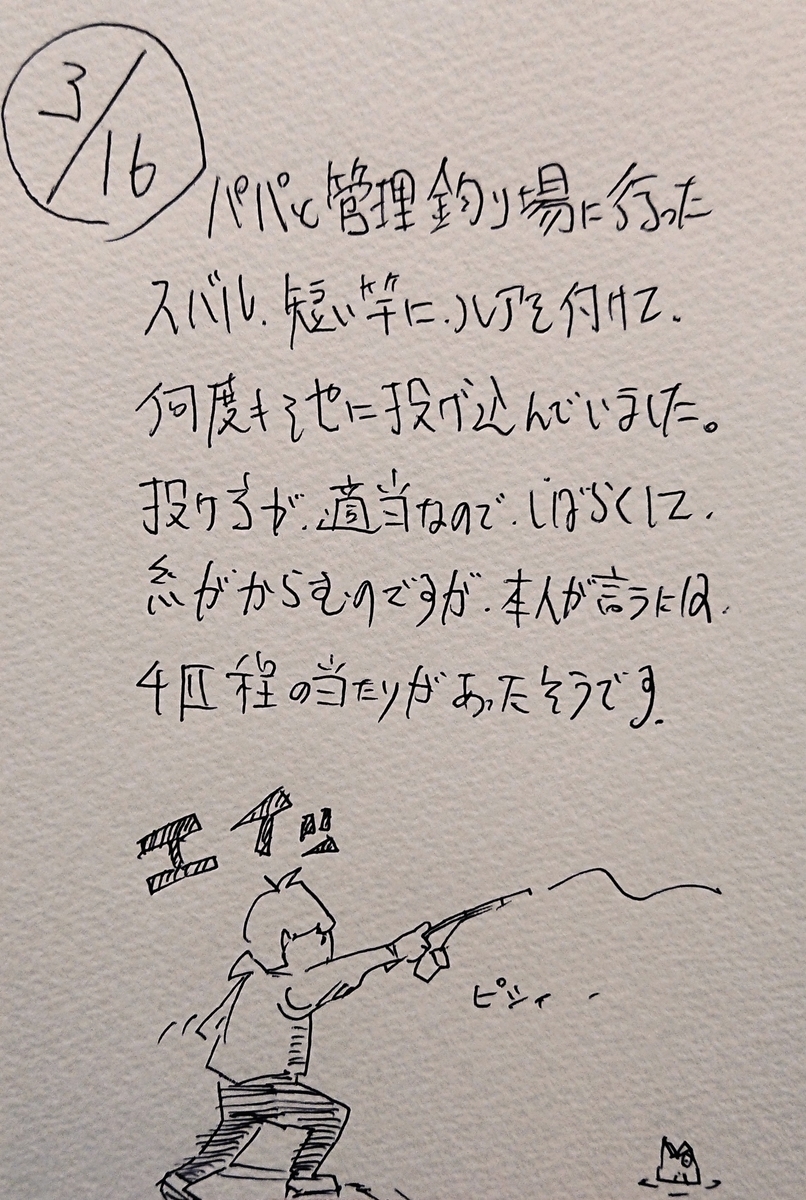 3/16
パパと管理釣り場に行った
スバル、短い竿に、ルアを付けて、
何度も池に投げ込んでいました。
投げ方が、適当なので、しばらくして、
糸がからむのですが、本人が言うには、
4匹程の当たりがあったそうです。
エイッ
ピシィー